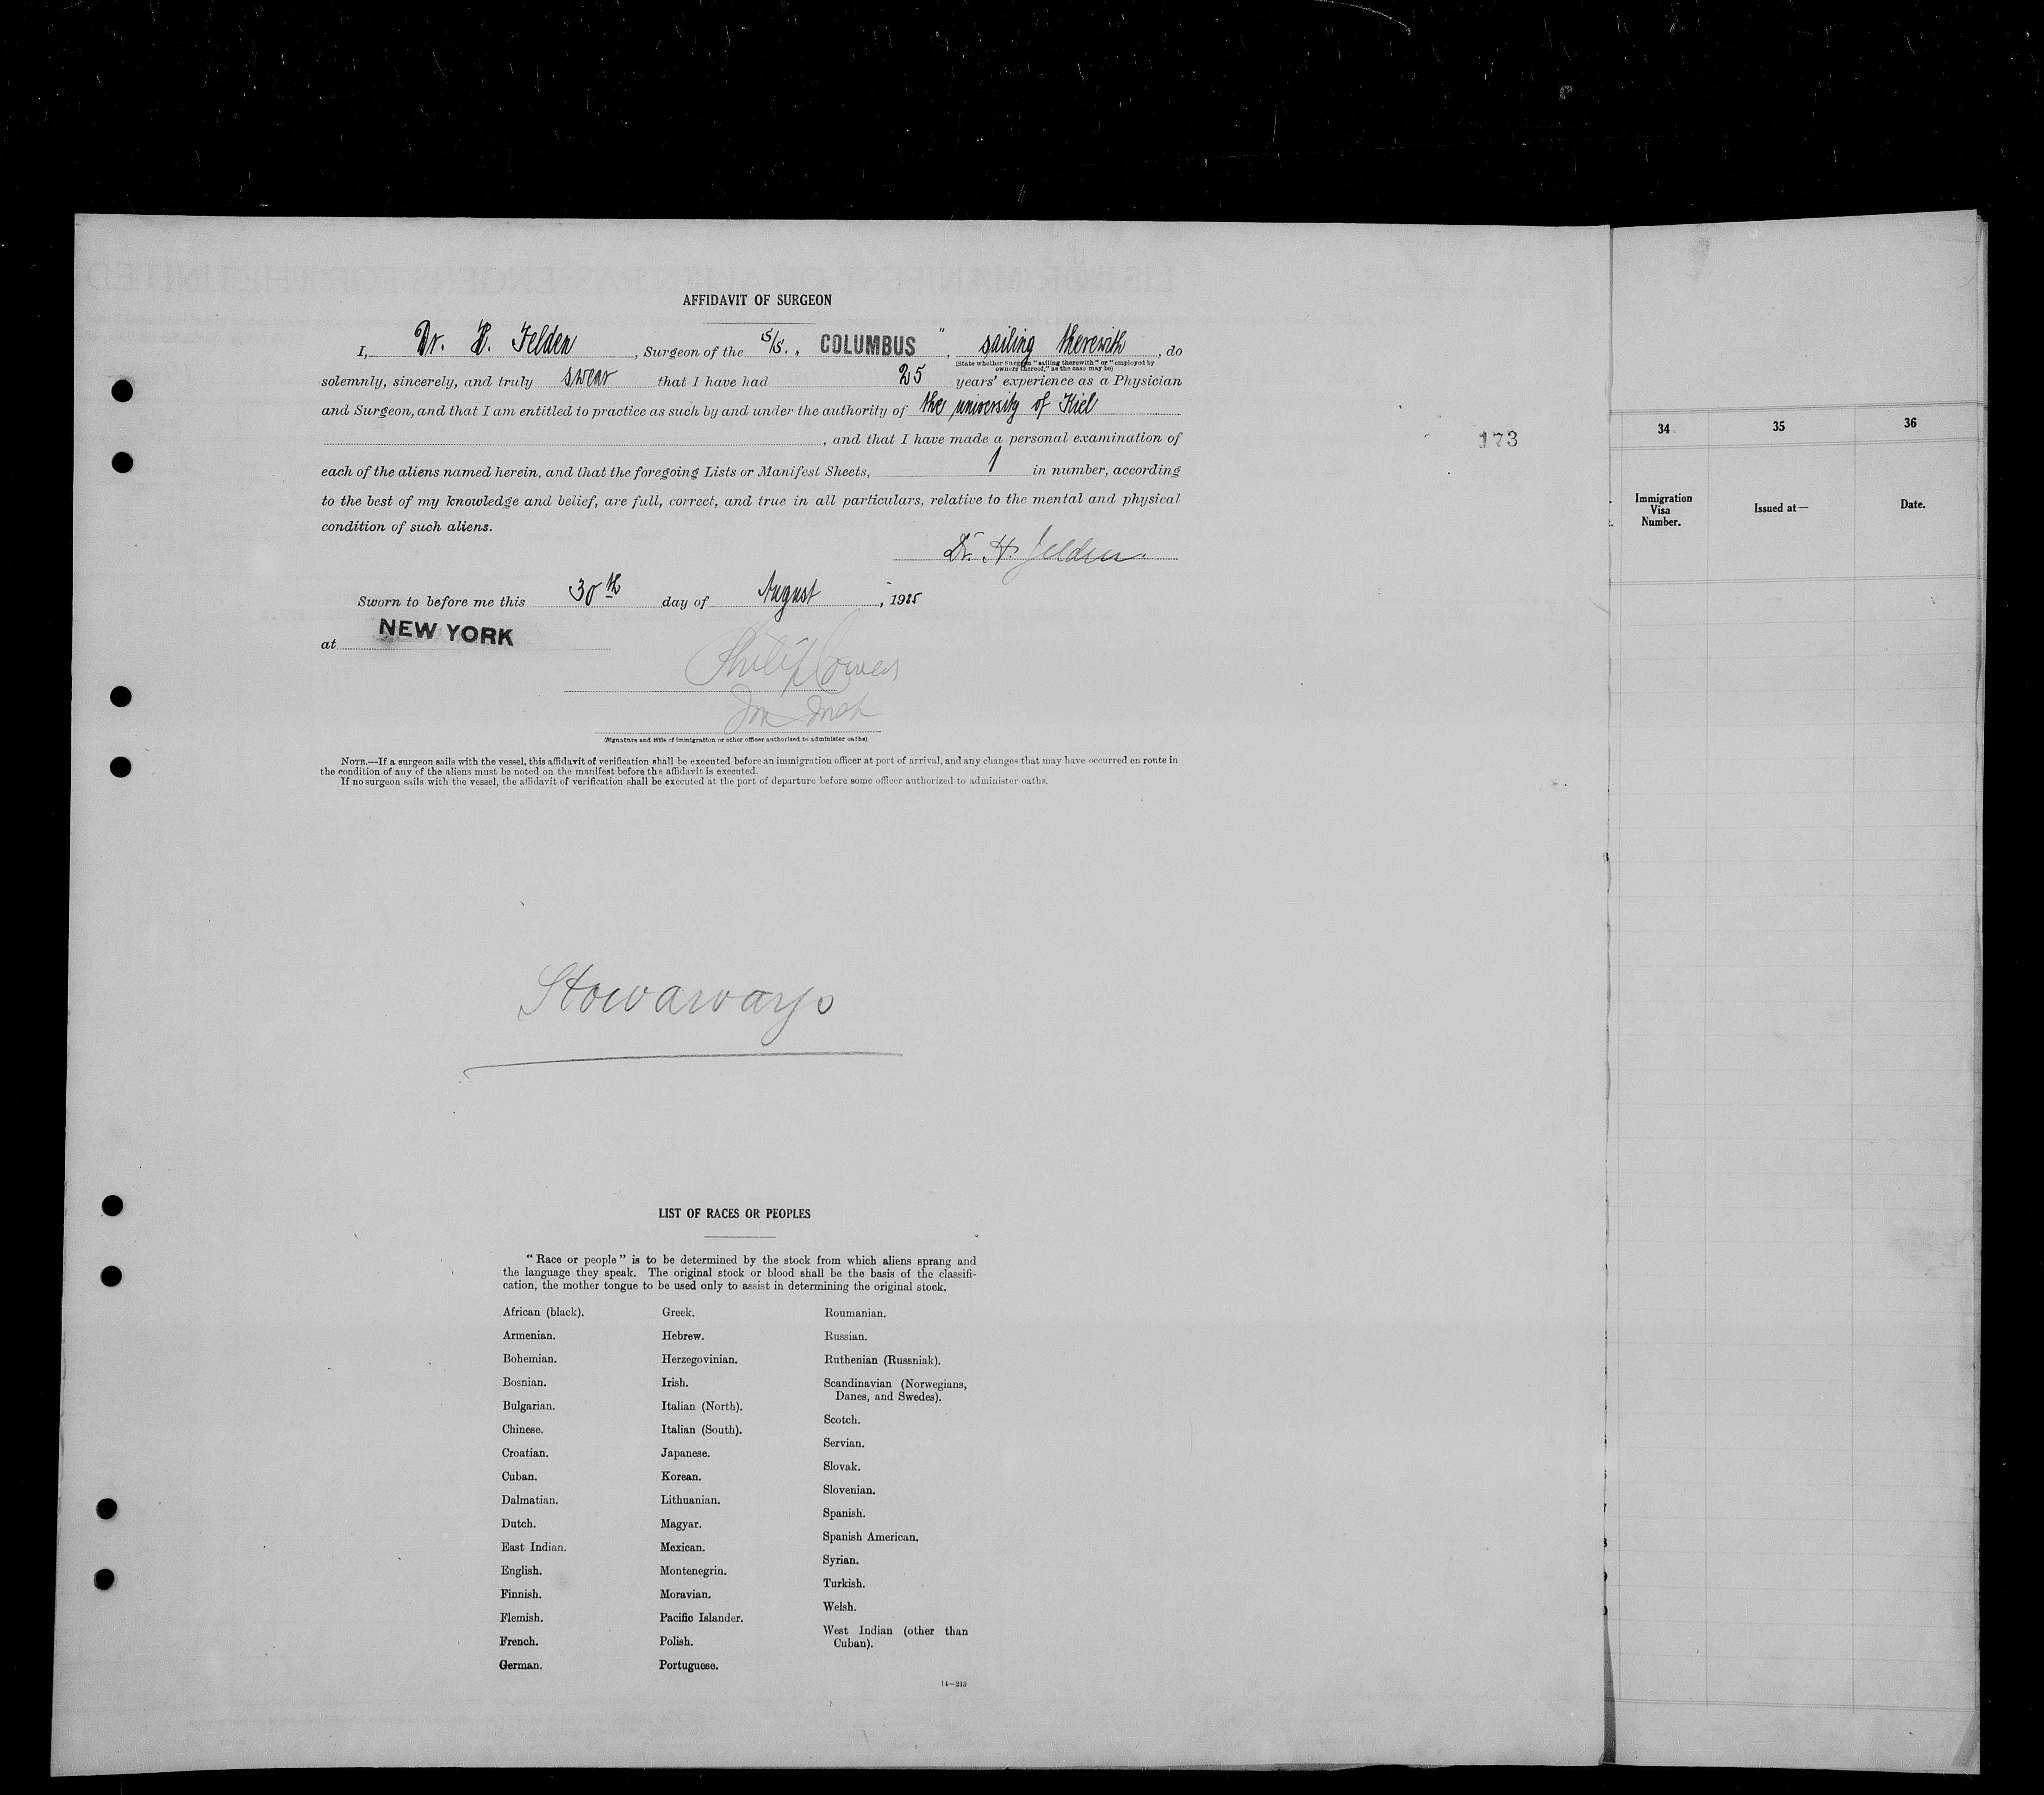 AFFIDAVIT OF SURGEON
I, Dr. H. Felden, Surgeon of the S/S. „ COLUMBUS ", sailing therewith, do
(State whether Surgeon "sailing therewith" or "employed by
owners thereof," as the case may be)
solemnly, sincerely, and truly swear that I have had 25 years' experience as a Physician
and Surgeon, and that I am entitled to practice as such by and under the authority of the university of Kiel
, and that I have made a personal examination of
each of the aliens named herein, and that the foregoing Lists or Manifest Sheets, 1 in number, according
to the best of my knowledge and belief, are full, correct, and true in all particulars, relative to the mental and physical
condition of such aliens.
Dr. H. Felden.
Sworn to before me this 30th day of August, 1925
at NEW YORK
(Signature and title of immigration or other officer authorized to administer oaths)
NOTE.—If a surgeon sails with the vessel, this affidavit of verification shall be executed before an immigration officer at port of arrival, and any changes that may have occurred en route in
the condition of any of the aliens must be noted on the manifest before the affidavit is executed.
If no surgeon sails with the vessel, the affidavit of verification shall be executed at the port of departure before some officer authorized to administer oaths.
173
34 35 36
Immigration
Visa
Number.
Issued at—
Date.
Stowaways
LIST OF RACES OR PEOPLES
"Race or people" is to be determined by the stock from which aliens sprang and
the language they speak. The original stock or blood shall be the basis of the classifi-
cation, the mother tongue to be used only to assist in determining the original stock.
African (black).
Armenian.
Bohemian.
Bosnian.
Bulgarian.
Chinese.
Croatian.
Cuban.
Dalmatian.
Dutch.
East Indian.
English.
Finnish.
Flemish.
French.
German.
Greek.
Hebrew.
Herzegovinian.
Irish.
Italian (North).
Italian (South).
Japanese.
Korean.
Lithuanian.
Magyar.
Mexican.
Montenegrin.
Moravian.
Pacific Islander.
Polish.
Portuguese.
Roumanian.
Russian.
Ruthenian (Russniak).
Scandinavian (Norwegians,
Danes, and Swedes).
Scotch.
Servian.
Slovak.
Slovenian.
Spanish.
Spanish American.
Syrian.
Turkish.
Welsh.
West Indian (other than
Cuban).
14—213